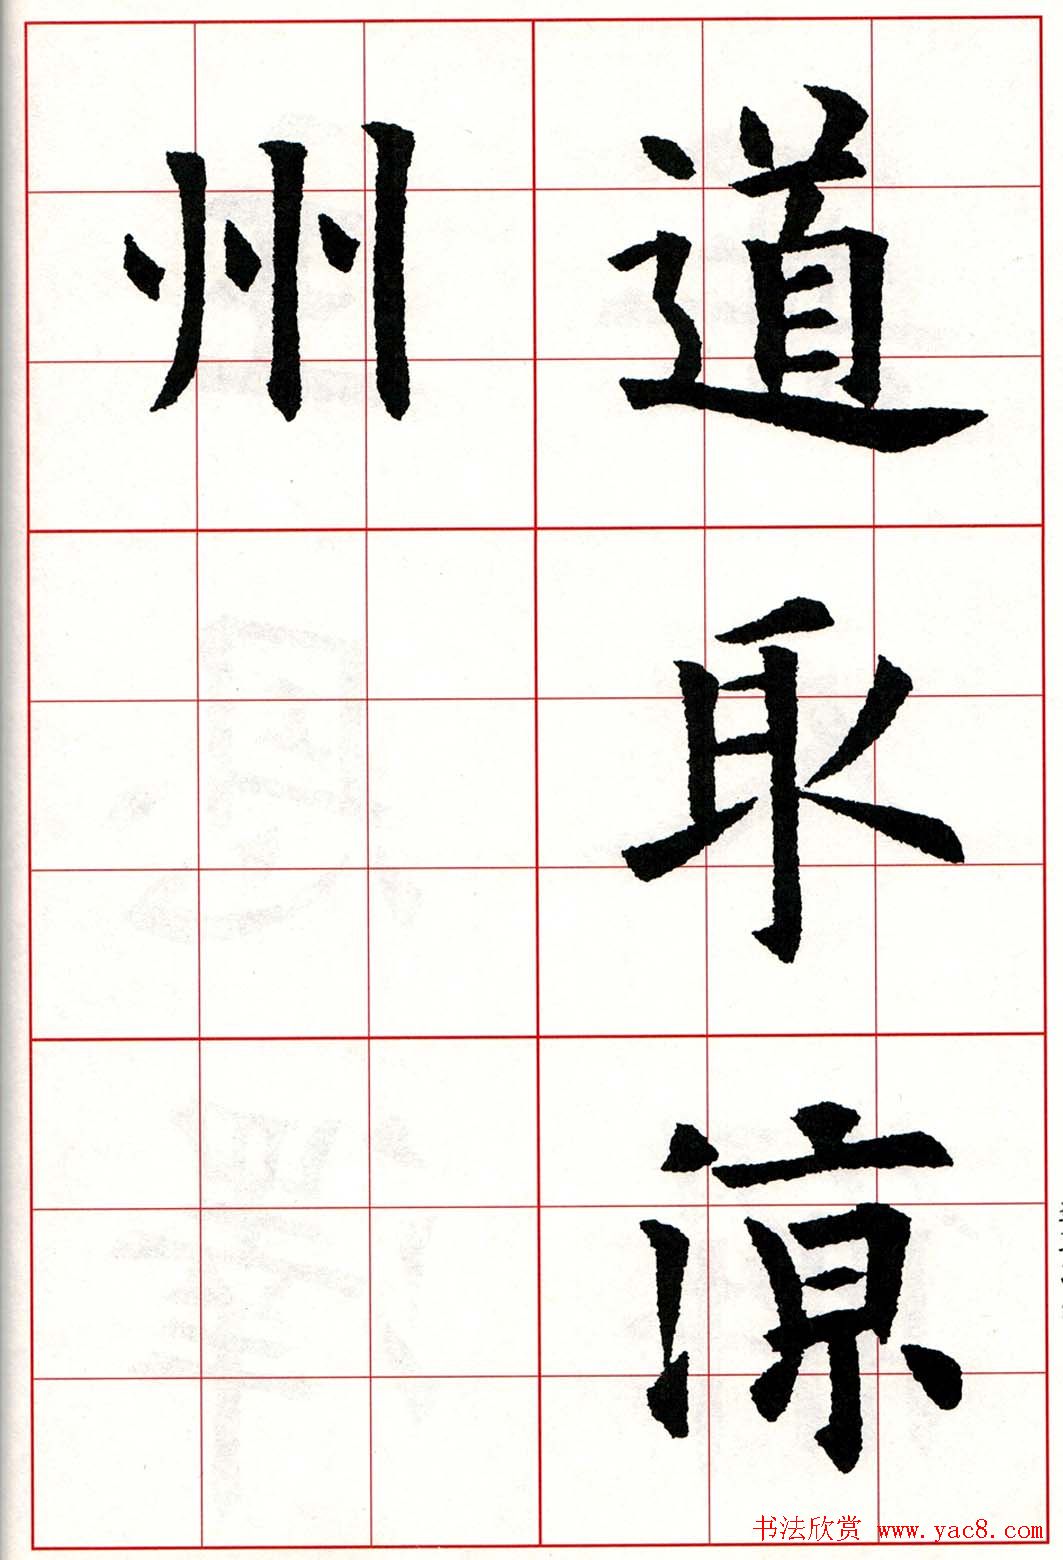 道取凉
州
书法欣赏 www.yac8.com